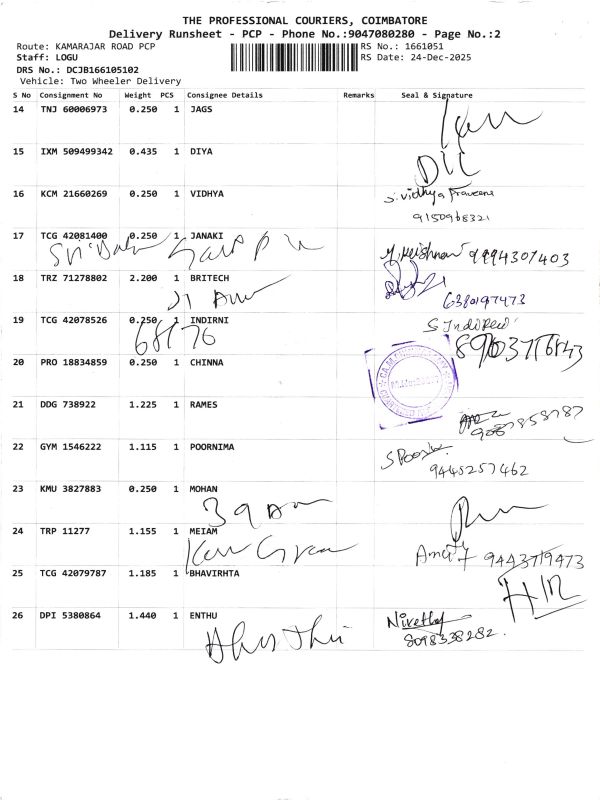 THE PROFESSIONAL COURIERS, COIMBATORE
Delivery Runsheet - PCP - Phone No.:9047080280 - Page No.:2
Route: KAMARAJAR ROAD PCP
Staff: LOGU
DRS No.: DCJB166105102
Vehicle: Two Wheeler Delivery
RS No.: 1661051
RS Date: 24-Dec-2025
S No Consignment No Weight PCS Consignee Details Remarks Seal & Signature
14 TNJ 60006973 0.250 1 JAGS
15 IXM 509499342 0.435 1 DIYA
16 KCM 21660269 0.250 1 VIDHYA S. Vidhya Praveena
9150968321
17 TCG 42081400 0.250 1 JANAKI
9994307403
18 TRZ 71278802 2.200 1 BRITECH
6380197473
19 TCG 42078526 0.250 1 INDIRNI
68/76
20 PRO 18834859 0.250 1 CHINNA
21 DDG 738922 1.225 1 RAMES
22 GYM 1546222 1.115 1 POORNIMA
9445257462
23 KMU 3827883 0.250 1 MOHAN
24 TRP 11277 1.155 1 MEIAM
9443719473
25 TCG 42079787 1.185 1 BHAVIRHTA
26 DPI 5380864 1.440 1 ENTHU
8098338282.